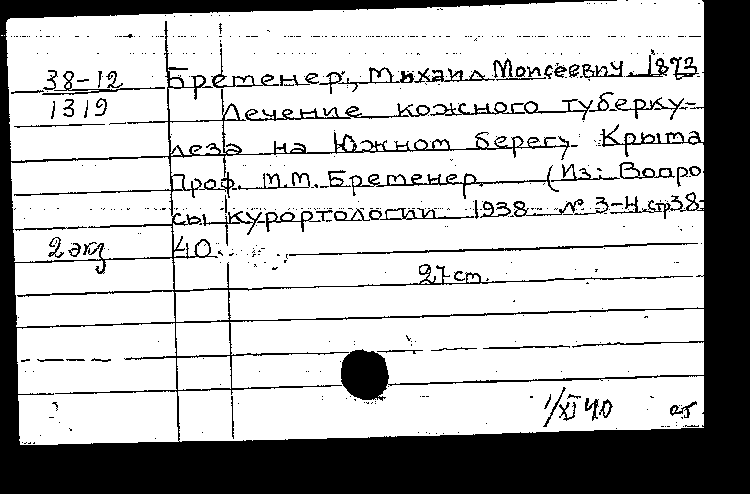 38-12
1319
Бременер, Михаил Моисеевич. 1873
Лечение кожного туберку-
леза на Южном берегу Крыма
Проф. М.М. Бременер. (Из: Вопро
сы курортологии 1938 № 3-4. стр 38-
2 экз 40.
27 ст.
1/XI 40